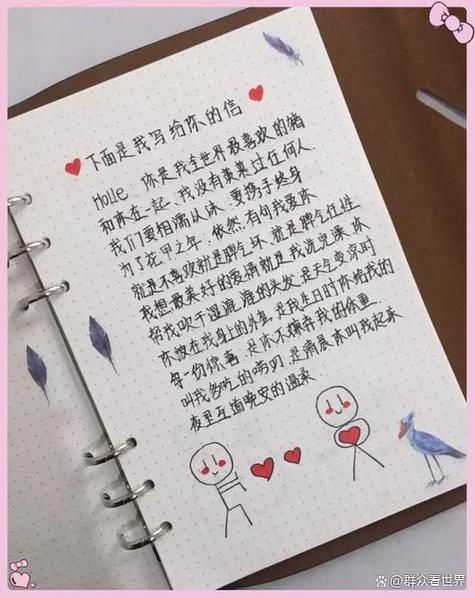 下面是我写给你的信
Holle 你是我全世界最喜欢的猪
和你在一起,我没有羡慕过任何人.
我们要相濡以沫,要携手终身
为了花甲之年,依然有句我爱你
就是不喜欢就是脾气坏,就是脾气任性
我想最美好的爱情就是我洗完澡,你
帮我吹干湿漉漉的头发,是天气变凉时
你披在我身上的外套,是我生日时你给我的
每一份惊喜,是你不嫌弃我的体重
叫我多吃的唠叨,是清晨你叫我起来
夜里互道晚安的温柔
@群众看世界